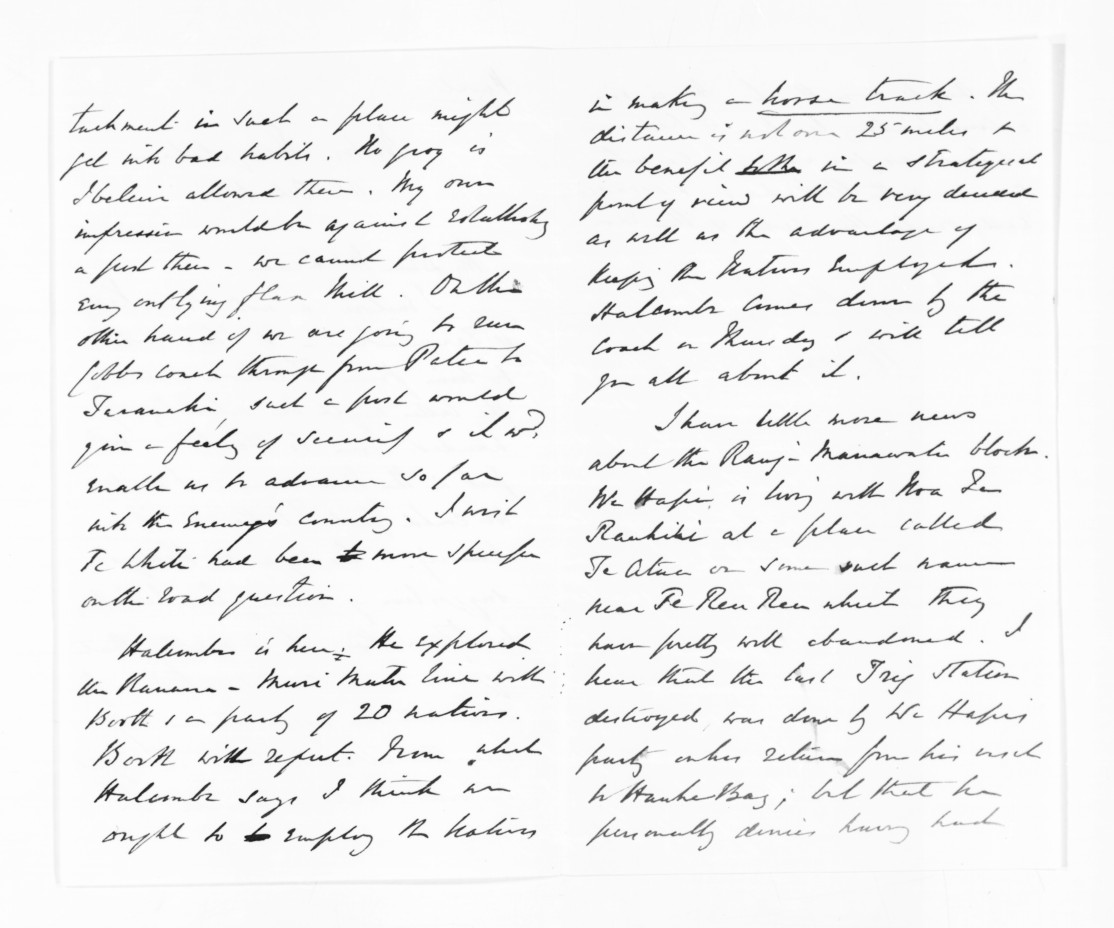 tachment in such a place might
get into bad habits. No grog is
I believe allowed there. My own
impression would be against establishing
a post there - we cannot protect
every outlying flax mill. On the
other hand if we are going to run
Cobbs coach through from Patea to
Taranaki, such a post would
give a feeling of security & it wd.
enable us to advance so far
into the Enemy's country. I wish
Te Whiti had been more specific
on the road question.
Halcombe is here. He explored
the Ranana - Muri Motu line with
Booth & a party of 20 natives.
Booth will report. From what
Halcombe says I think we
ought to employ the Natives
in making a horse track. The
distance is not over 25 miles &
the benefit in a strategical
point of view will be very decided
as well as the advantage of
keeping the Natives Employed.
Halcombe comes down by the
Coach on Thursday & will tell
you all about it.
I have little more news
about the Rangi-Manawatu block.
Wi Hapi, is living with Noa Te
Rauhihi at a place called
Te Atua or some such name
near Te Reu Reu which they
have pretty well abandoned. I
hear that the last Trig Station
destroyed, was done by Wi Hapi's
party on his return from his visit
to Hawke Bay; but that he
personally denies having had